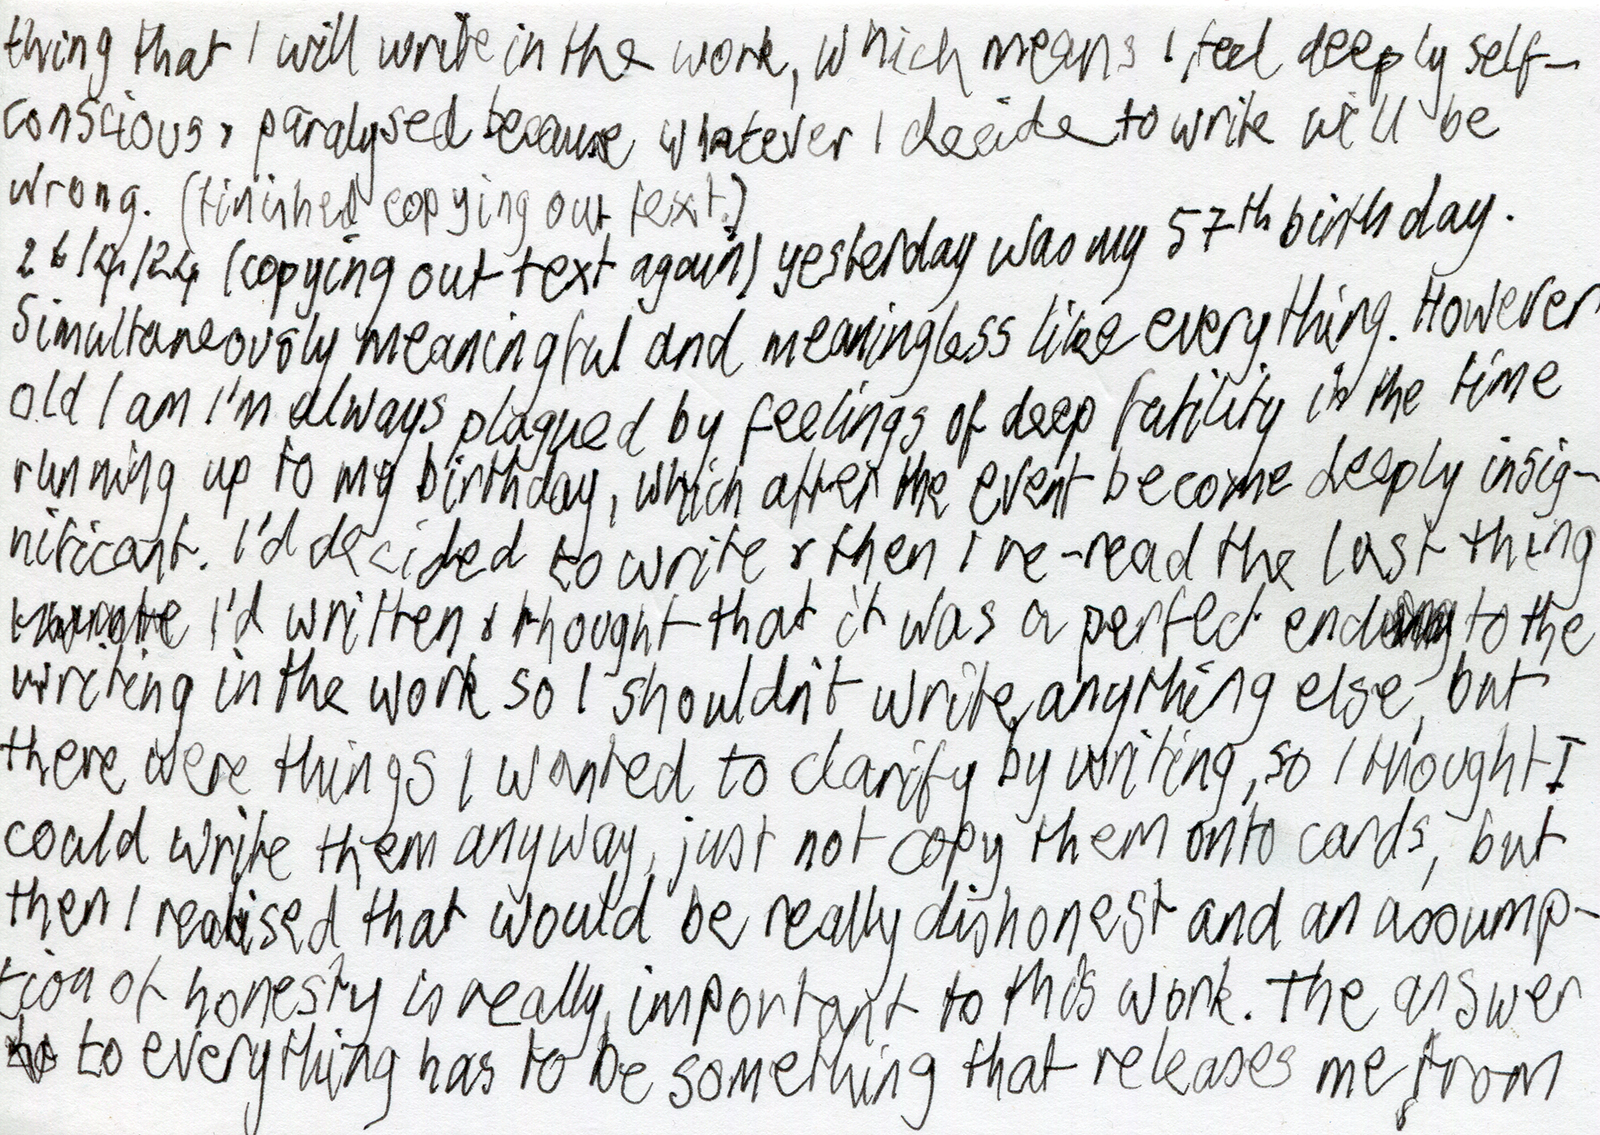 thing that I will write in the work, which means I feel deeply self-
conscious & paralysed because whatever I decide to write will be
wrong. (finished copying out text.)
26/4/24 (copying out text again) yesterday was my 57th birthday.
Simultaneously meaningful and meaningless like everything. However
old I am I'm always plagued by feelings of deep futility in the time
running up to my birthday, which after the event become deeply insig-
nificant. I'd decided to write & then I re-read the last thing
I'd written & thought that it was a perfect ending to the
writing in the work so I shouldn't write anything else, but
there were things I wanted to clarify by writing, so I thought I
could write them anyway, just not copy them onto cards, but
then I realised that would be really dishonest and an assump-
tion of honesty is really important to this work. The answer
to everything has to be something that releases me from